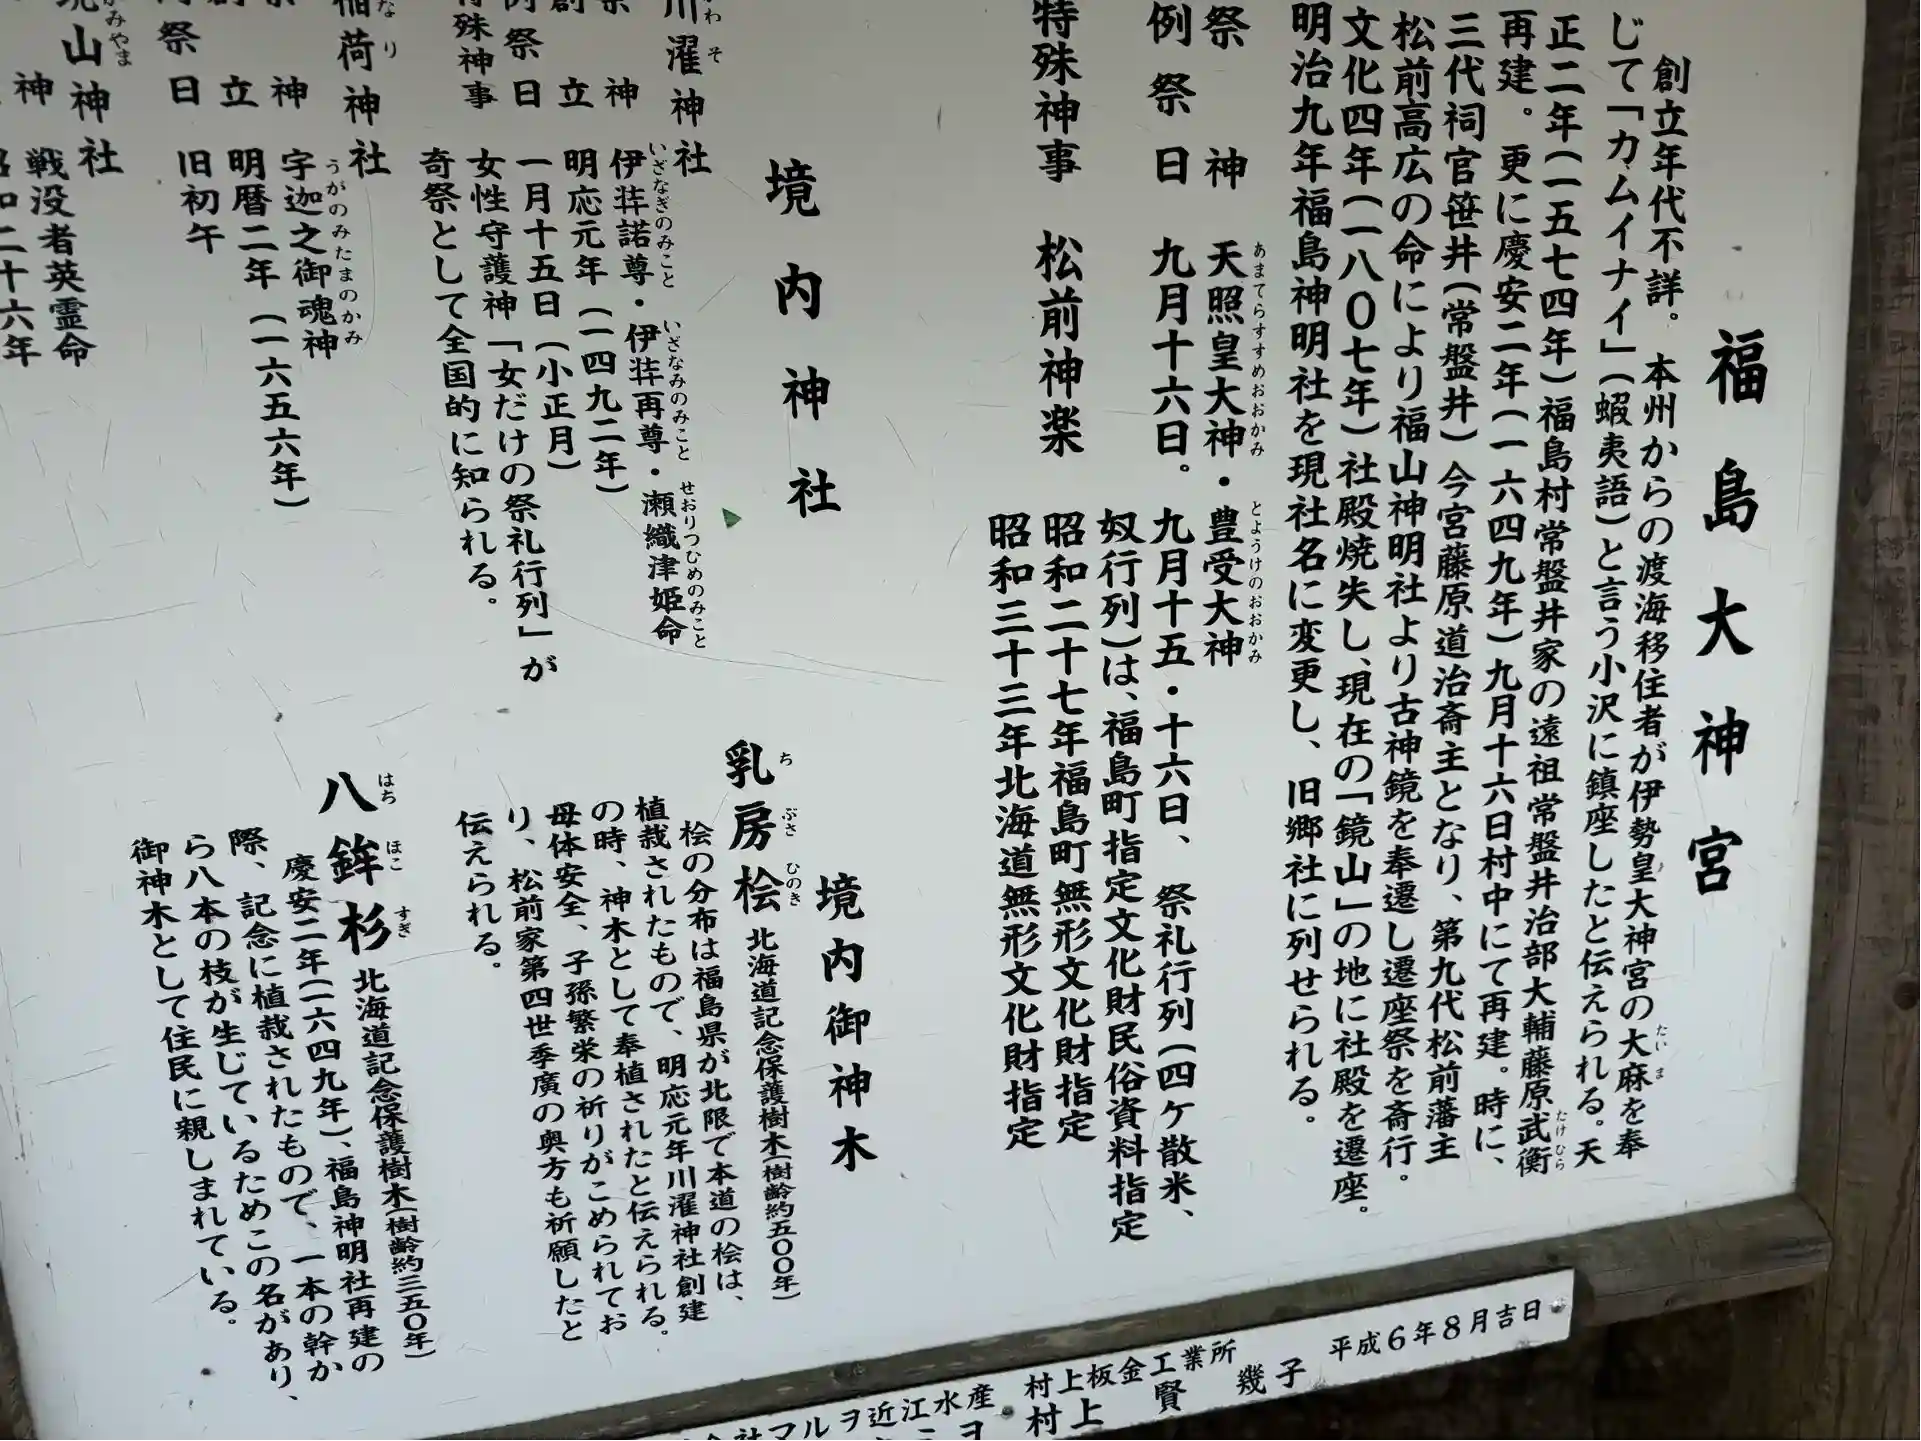 福島大神宮
創立年代不詳。本州からの渡海移住者が伊勢皇大神宮の大麻を奉
じて「カムイナイ」(蝦夷語)と言う小沢に鎮座したと伝えられる。天
正二年(一五七四年)福島村常盤井家の遠祖常盤井治部大輔藤原武衡
再建。更に慶安二年(一六四九年)九月十六日村中にて再建。時に、
三代祠官笹井(常盤井)今宮藤原道治斎主となり、第九代松前藩主
松前高広の命により福山神明社より古神鏡を奉遷し遷座祭を斎行。
文化四年(一八〇七年)社殿焼失し、現在の「鏡山」の地に社殿を遷座。
明治九年福島神明社を現社名に変更し、旧郷社に列せられる。
祭神 天照皇大神・豊受大神
あまてらすすめおおかみ とようけのおおかみ
例祭日 九月十六日。九月十五・十六日、祭礼行列(四ケ散米、
奴行列)は、福島町指定文化財民俗資料指定
特殊神事 松前神楽 昭和二十七年福島町無形文化財指定
昭和三十三年北海道無形文化財指定
境内神社
川濯神社
祭神 伊弉諾尊・伊弉再尊・瀬織津姫命
いざなぎのみこと いざなみのみこと せおりつひめのみこと
創立 明応元年(一四九二年)
例祭日 一月十五日(小正月)
特殊神事 女性守護神「女だけの祭礼行列」が
奇祭として全国的に知られる。
稲荷神社
祭神 宇迦之御魂神
うがのみたまのかみ
創立 明暦二年(一六五六年)
例祭日 旧初午
山神社
神 戦没者英霊命
昭和二十六年
境内御神木
乳房桧 北海道記念保護樹木(樹齢約五〇〇年)
ちぶさひのき
桧の分布は福島県が北限で本道の桧は、
植栽されたもので、明応元年川濯神社創建
の時、神木として奉植されたと伝えられる。
母体安全、子孫繁栄の祈りがこめられてお
り、松前家第四世季廣の奥方も祈願したと
伝えられる。
八鉾杉 北海道記念保護樹木(樹齢約三五〇年)
はちほこすぎ
慶安二年(一六四九年)、福島神明社再建の
際、記念に植栽されたもので、一本の幹か
ら八本の枝が生じているためこの名があり、
御神木として住民に親しまれている。
平成6年8月吉日
村上板金工業所
村上 賢
幾子
マルヲ近江水産